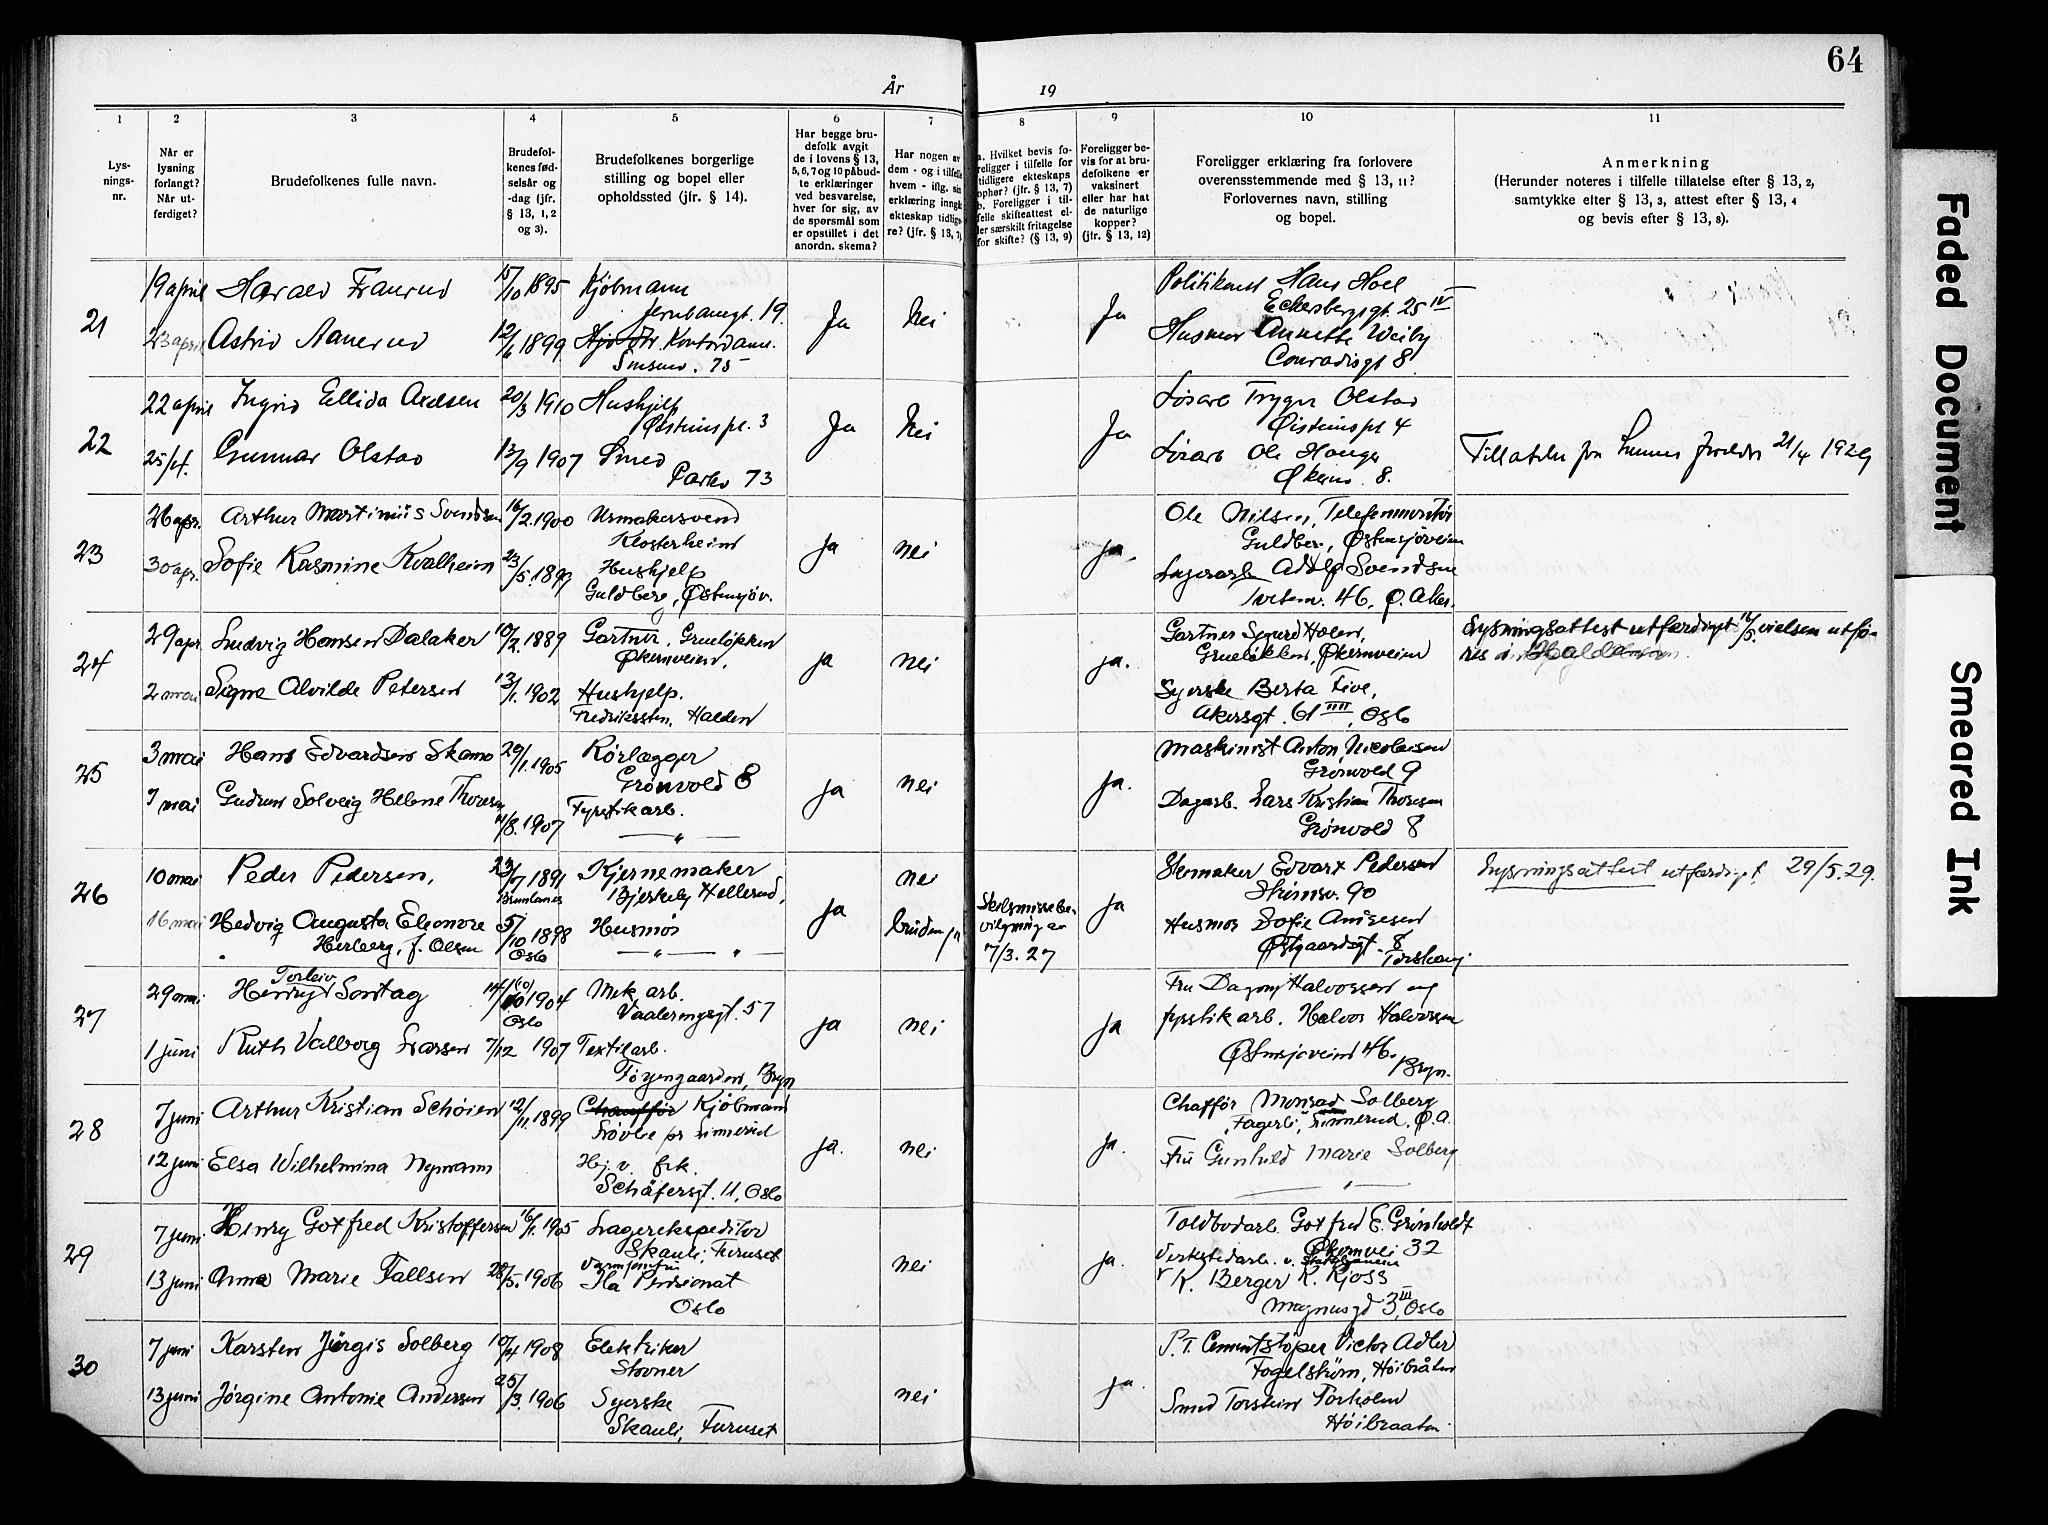 64
År 19
1 2 3 4 5 6 7 8 9 10 11
Lys-
nings-
nr.
Når er
lysning
forlangt?
Når ut-
ferdiget?
Brudefolkenes fulle navn.
Brudefol-
kenes fød-
selsår og
-dag (jfr.
§ 13, 1, 2
og 3).
Brudefolkenes borgerlige
stilling og bopel eller
opholdssted (jfr. § 14).
Har begge bru-
defolk avgit
de i lovens § 13,
5, 6, 7 og 10 påbud-
te erklæringer
ved besvarelse,
hver for sig, av
de spørsmål som
er opstillet i det
anordn. skema?
Har nogen av
dem - og i tilfelle
hvem - iflg. sin
erklæring inngå
ekteskap tidlige-
re? (jfr. § 13, 7)
a. Hvilket bevis fo-
religger i tilfelle for
tidligere ekteskaps
ophør? (jfr. § 13, 7)
b. Foreligger i til-
felle skifteattest el-
ler særskilt fritagelse
for skifte? (§ 13, 9)
Foreligger be-
vis for at bru-
defolkene er
vaksinert
eller har hat
de naturlige
kopper?
(jfr. § 13, 12)
Foreligger erklæring fra forlovere
overensstemmende med § 13, 11?
Forlovernes navn, stilling
og bopel.
Anmerkning
(Herunder noteres i tilfelle tillatelse efter § 13, 2,
samtykke efter § 13, 3, attest efter § 13, 4
og bevis efter § 13, 8).
21
19 april Harald 15/10 1895 Kjøbmann
19.
23 april Astrid Aanerud 12/6 1899 Kontordame.
75
Ja Nei Ja
Hans Hoel
Eckersbergsgt. 25 IV
Husmor Annette Weiby
Conradisgt 8
22
22 april Ingrid Ellida Axelsen 20/3 1910 Hushjelp
Østeinspl. 3
25/4. Gunnar Olstad 13/9 1907 Smed
Parkv 73
Ja Nei Ja
Trygve Olstad
Øisteinspl 4
Ole Hauger
8.
Tillatelse fra 21/4 1929
23
26 apr. Arthur Martinius Svendsen 16/2.1900 Urmakersvend
Klosterheim
30 apr. Sofie Rasmine Kvalheim 23/5.1893 Hushjelp
Guldberg, Østensjøv.
Ja nei ja.
Ole Nilsen, Telefonmontør
Guldber., Østensjøveien
Lagerarb. Adolf Svendsen
46. Ø. Aker.
24
29 apr. Ludvig Hansen Dalaker 10/2.1889 Gartner, Grueløkken
Økernveien.
2 mai Signe Alvilde Petersen 13/1.1902 Hushjelp.
Fredriksten, Halden
ja nei ja.
Gartner Sigurd Holen,
Grueløkken, Økernveien
Syerske Berta Five,
Akersgt. 61 IIII, Oslo
Lysningsattest utfærdiget vielsen utfø-
res i Halden.
25
3 mai Hans Edvardsen Skamo 29/1.1905 Rørlægger
Grønvold 8
7 mai Gudrun Solveig Helene Thoresen 11/8.1907 Fyrstikarb.
— „ —
ja nei ja.
Maskinist Anton Nicolaisen
Grønvold 9
Dagarb. Lars Kristian Thoresen
Grønvold 8
26
10 mai Peder Pedersen, 23/7 1891 Kjernemaker
Brunlanes Bjerkely Hellerud,
16 mai Hedvig Augusta Eleonore 5/10 1898 Husmor
Herberg, f. Olsen Oslo — „ — „ —
ja nei
bruden ja
Skilsmissebe-
vilgning av
7/3.27
ja
Skomaker Edvart Pedersen
90
Husmor Sofie Andresen
Østgaardsgt. 8
Torshaug
Lysningsattest utfærdiget 29/5.29.
27
29 mai Torleiv
Henry Sontag 14/10 (10) 1904 Mek. arb.
Oslo Vaaleringsgt. 57
1 juni Ruth Valborg Larsen 7/12 1907 Textilarb.
Tøyengaarden, Bryn
ja nei ja
Fru Dagny Halvorsen og
fyrstikarb. Halvor Halvorsen
Østensjøveien 46.
Bryn.
28
7 juni Arthur Kristian Schøien 12/11.1899 Chauffør Kjøbmand
Løvlie pr Linnerud
12 juni Elsa Wilhelmina Nymann Hj. v. frk.
Schäfersgt. 11, Oslo
ja. nei ja.
Chaffør Monrad Solberg
"Fagerli", Linnerud, Ø.A.
Fru Gunhild Marie Solberg
— „ —
29
7 juni Henry Gotfred Kristoffersen 16/11.1905 Lagerekspeditør
Skauli, Furuset
13 juni Anna Marie Tallsen 28/5.1906 Varmjomfru
Ila Pensionat
Oslo
nei ja.
Toldbodarb. Gotfred E. Grünholdt
Økernvei 32
Verkstedarb. v. Statsbanene
K. Berger K. Kjoss
Magnusgd 3 III, Oslo
30
7 juni Karsten Jørgis Solberg 10/4 1908 Elektriker
Stovner
13 juni Jørgine Antonie Andersen 25/3.1906 Syerske
Skauli, Furuset
nei ja.
P.T. Cementstøper Victor Adler
Fogelstrøm, Høibråten
Smed Torstein Torholm
Høibraaten
Faded Document
Smeared Ink